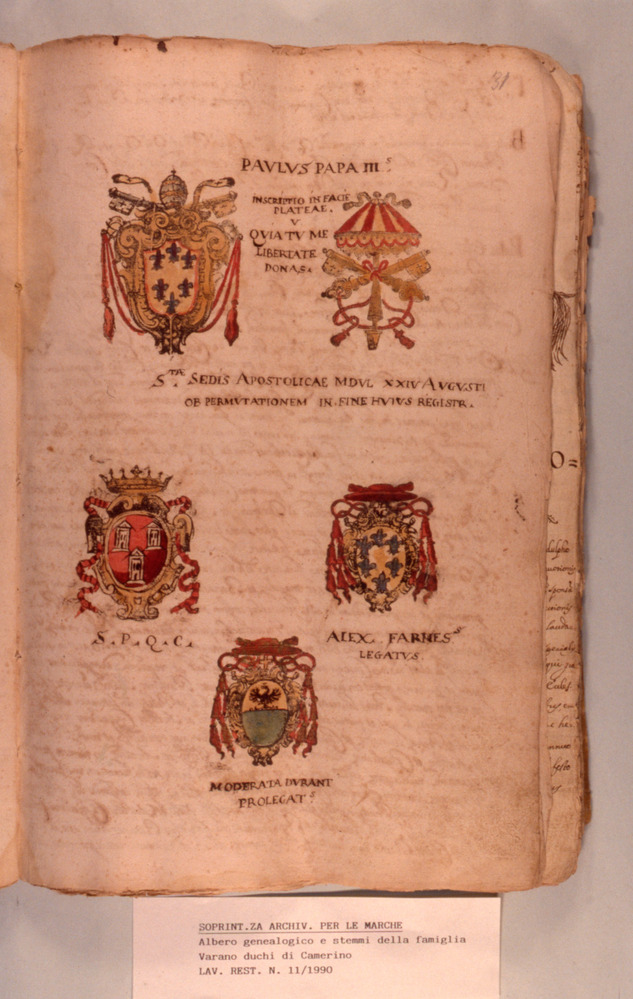 31
PAVLVS PAPA III.s
INSCRIPTIO IN FACIE
PLATEAE.
V
QVIA TV ME
LIBERTATE
DONAS.
S.TA SEDIS APOSTOLICAE MDVL XXIV AVGVSTI
OB PERMVTATIONEM IN FINE HVIVS REGISTR.
S. P. Q. C.
ALEX. FARNES.s
LEGATVS.
MODERATA DVRANT
PROLEGAT.s
O=
SOPRINT.ZA ARCHIV. PER LE MARCHE
Albero genealogico e stemmi della famiglia
Varano duchi di Camerino
LAV. REST. N. 11/1990